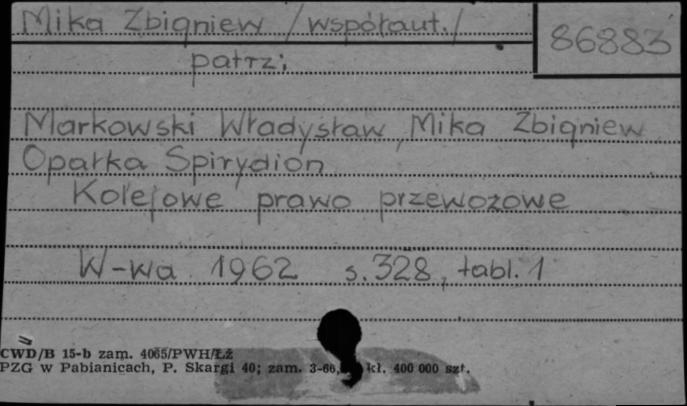 Mika Zbigniew /współaut./
86883
patrz:
Markowski Władysław, Mika Zbigniew
Opałka Spirydion
Kolejowe prawo przewozowe
W-wa 1962 s. 328, tabl. 1
CWD/B 15-b zam. 4065/PWH/Łż
PZG w Pabianicach, P. Skargi 40; zam. 3-66, kł. 400 000 szt.